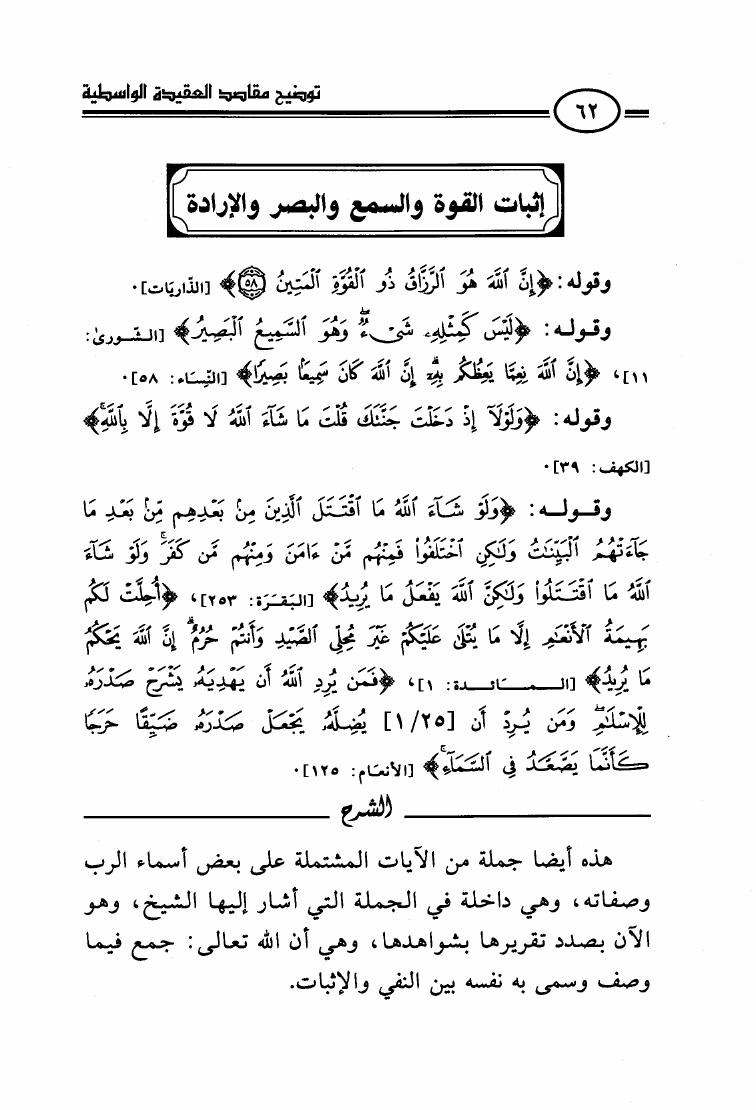 توضيح مقاصد العقيدة الواسطية
٦٢
إثبات القوة والسمع والبصر والإرادة
وقوله: ﴿إِنَّ ٱللَّهَ هُوَ ٱلرَّزَّاقُ ذُو ٱلْقُوَّةِ ٱلْمَتِينُ ۝٥٨﴾ [الذّاريَات].
وقولـه: ﴿لَيْسَ كَمِثْلِهِۦ شَىْءٌ ۖ وَهُوَ ٱلسَّمِيعُ ٱلْبَصِيرُ﴾ [الشّورىٰ:
١١]، ﴿إِنَّ ٱللَّهَ نِعِمَّا يَعِظُكُم بِهِۦٓ ۗ إِنَّ ٱللَّهَ كَانَ سَمِيعًۢا بَصِيرًا﴾ [النِّسَاء: ٥٨].
وقوله: ﴿وَلَوْلَآ إِذْ دَخَلْتَ جَنَّتَكَ قُلْتَ مَا شَآءَ ٱللَّهُ لَا قُوَّةَ إِلَّا بِٱللَّهِ ۚ﴾
[الكهف: ٣٩].
وقـولـه: ﴿وَلَوْ شَآءَ ٱللَّهُ مَا ٱقْتَتَلَ ٱلَّذِينَ مِنۢ بَعْدِهِم مِّنۢ بَعْدِ مَا
جَآءَتْهُمُ ٱلْبَيِّنَـٰتُ وَلَـٰكِنِ ٱخْتَلَفُوا۟ فَمِنْهُم مَّنْ ءَامَنَ وَمِنْهُم مَّن كَفَرَ ۚ وَلَوْ شَآءَ
ٱللَّهُ مَا ٱقْتَتَلُوا۟ وَلَـٰكِنَّ ٱللَّهَ يَفْعَلُ مَا يُرِيدُ﴾ [البَقَرَة: ٢٥٣]، ﴿أُحِلَّتْ لَكُم
بَهِيمَةُ ٱلْأَنْعَـٰمِ إِلَّا مَا يُتْلَىٰ عَلَيْكُمْ غَيْرَ مُحِلِّى ٱلصَّيْدِ وَأَنتُمْ حُرُمٌ ۗ إِنَّ ٱللَّهَ يَحْكُمُ
مَا يُرِيدُ﴾ [الـمـائـدة: ١]، ﴿فَمَن يُرِدِ ٱللَّهُ أَن يَهْدِيَهُۥ يَشْرَحْ صَدْرَهُۥ
لِلْإِسْلَـٰمِ ۖ وَمَن يُرِدْ أَن [١/٢٥] يُضِلَّهُۥ يَجْعَلْ صَدْرَهُۥ ضَيِّقًا حَرَجًا
كَأَنَّمَا يَصَّعَّدُ فِى ٱلسَّمَآءِ ۚ﴾ [الأنعَام: ١٢٥].
الشرح
هذه أيضا جملة من الآيات المشتملة على بعض أسماء الرب
وصفاته، وهي داخلة في الجملة التي أشار إليها الشيخ، وهو
الآن بصدد تقريرها بشواهدها، وهي أن الله تعالى: جمع فيما
وصف وسمى به نفسه بين النفي والإثبات.